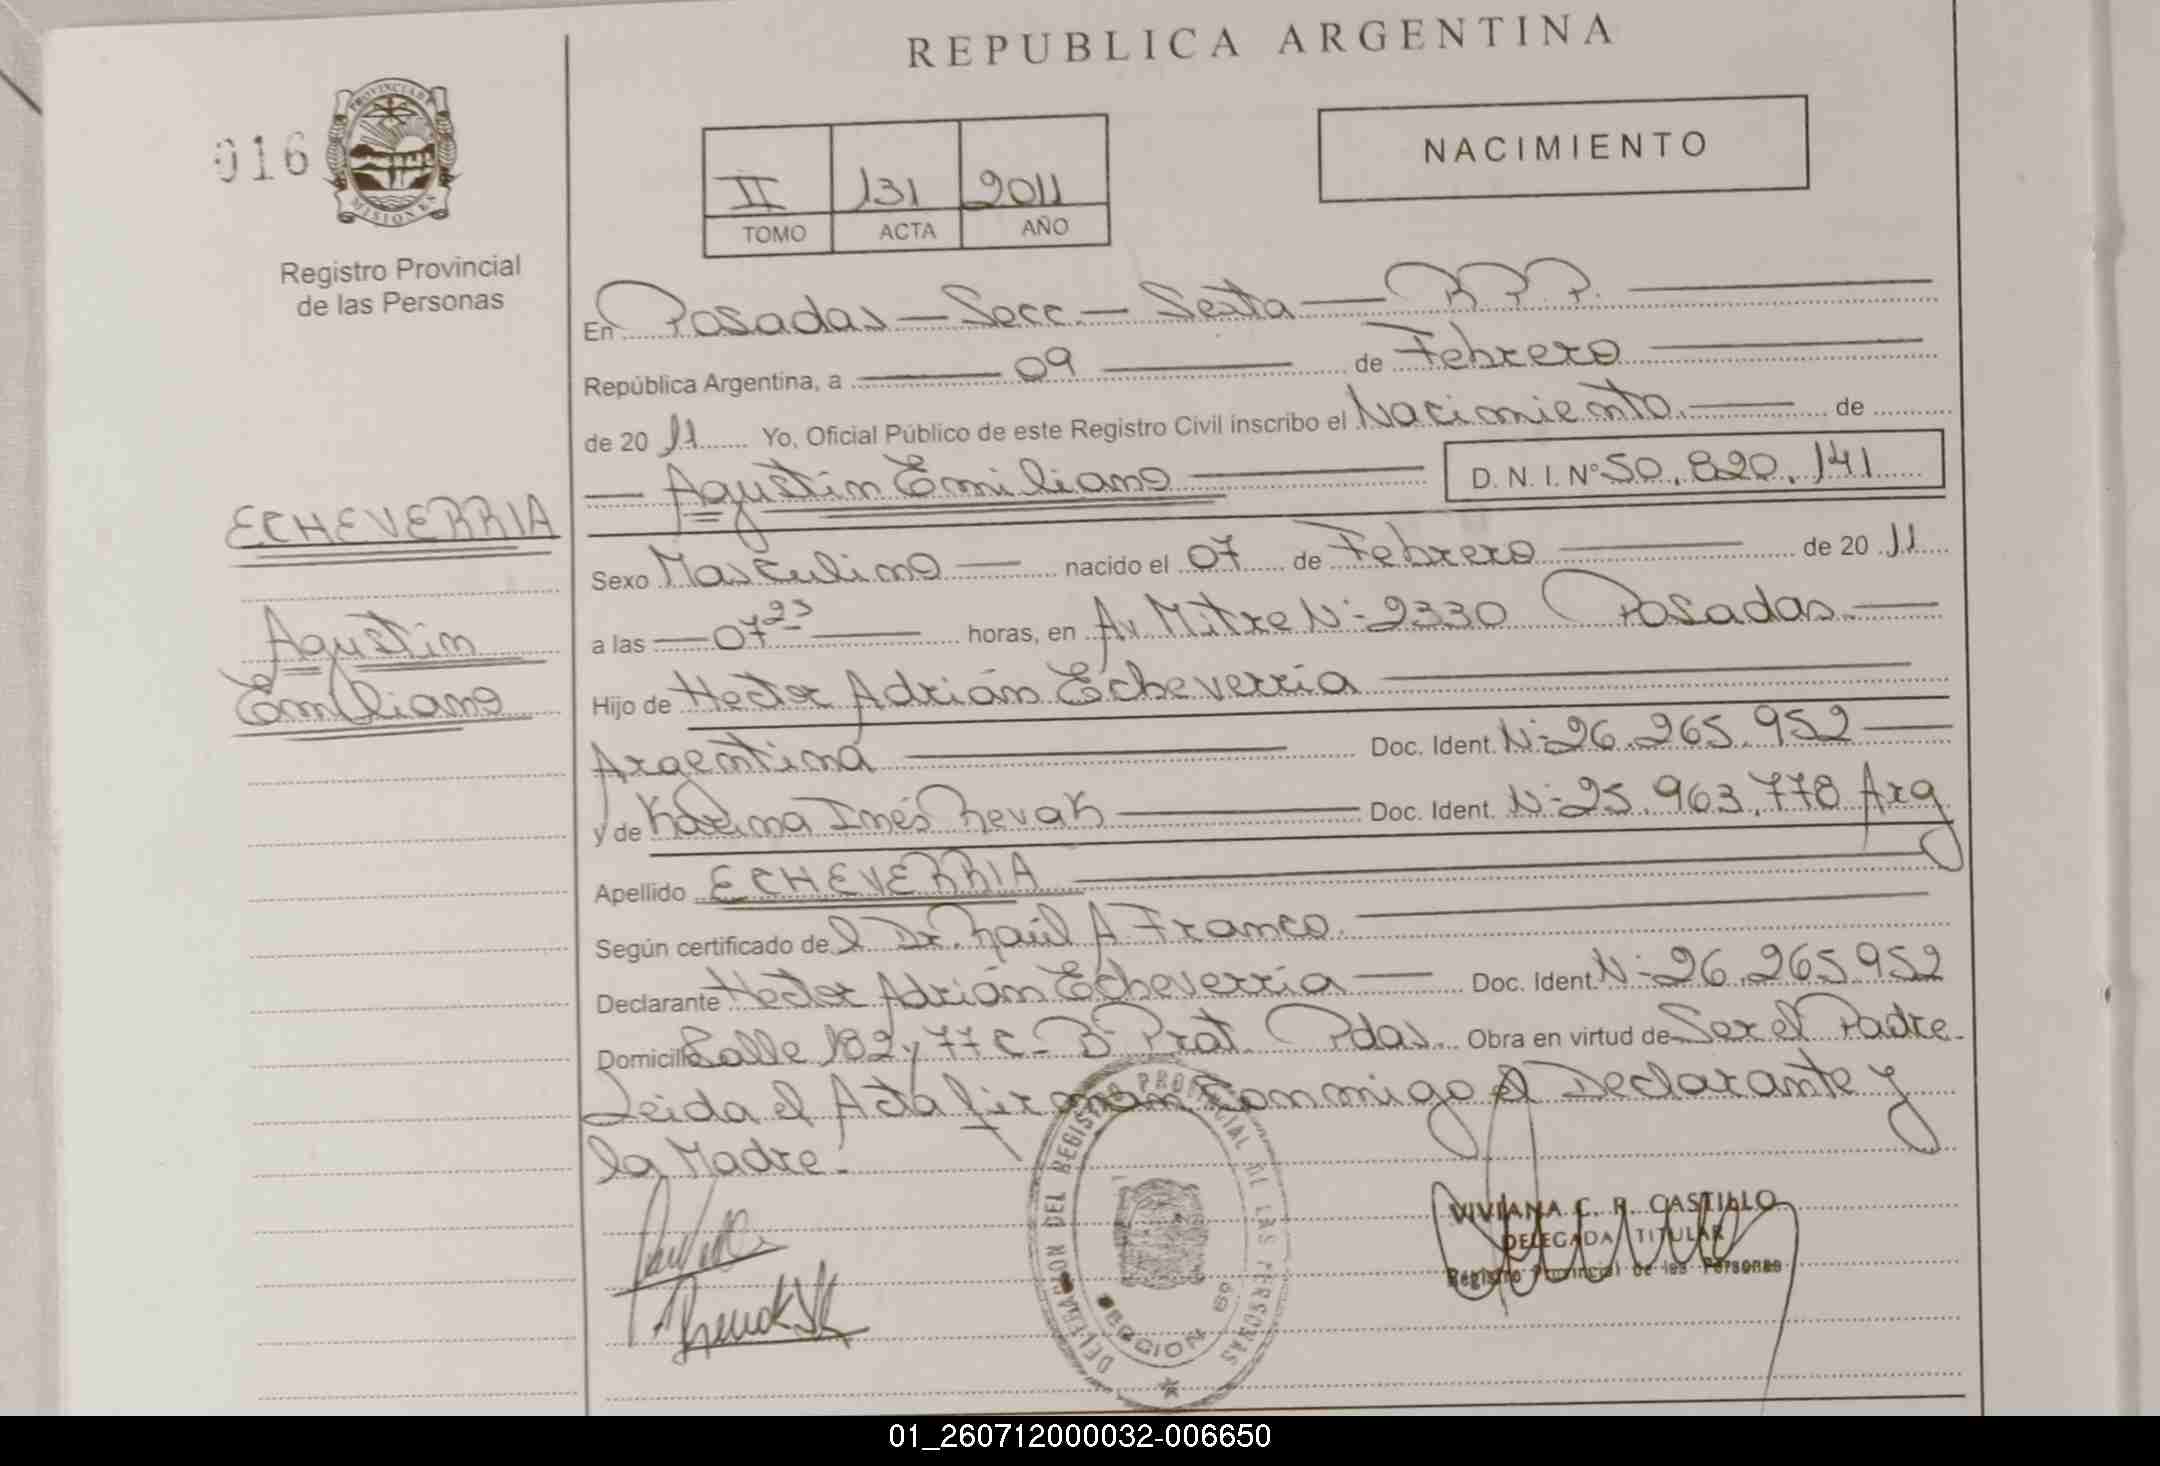 REPUBLICA ARGENTINA
016
PROVINCIA DE
MISIONES
Registro Provincial
de las Personas
II 131 2011
TOMO ACTA AÑO
NACIMIENTO
En Posadas — Secc — Sexta — R.P.P.
República Argentina, a 09 de Febrero
de 2011 Yo, Oficial Público de este Registro Civil inscribo el Nacimiento de
Agustin Emiliano D. N. I. Nº 50.820.141
ECHEVERRIA
Sexo Masculino nacido el 07 de Febrero de 2011
a las 07 23 horas, en Av Mitre Nº 2330 Posadas.
Agustin
Emiliano
Hijo de Hector Adrián Echeverria
Argentina Doc. Ident. Nº 26.265.952
y de Karina Inés Revak Doc. Ident. Nº 25.963.778 Arg
Apellido ECHEVERRIA
Según certificado del Dr. Raúl A Franco
Declarante Hector Adrián Echeverria Doc. Ident. Nº 26.265952
Domicilio Calle 182 y 77 C - Bº Prat. Pdas. Obra en virtud de Ser el Padre.
Leida el Acta firman Conmigo el Declarante y
la Madre.
DELEGACION DEL REGISTRO PROVINCIAL DE LAS PERSONAS
SECCION 6º
VIVIANA C. R. CASTILLO
DELEGADA TITULAR
Registro Provincial de las Personas
01_260712000032-006650